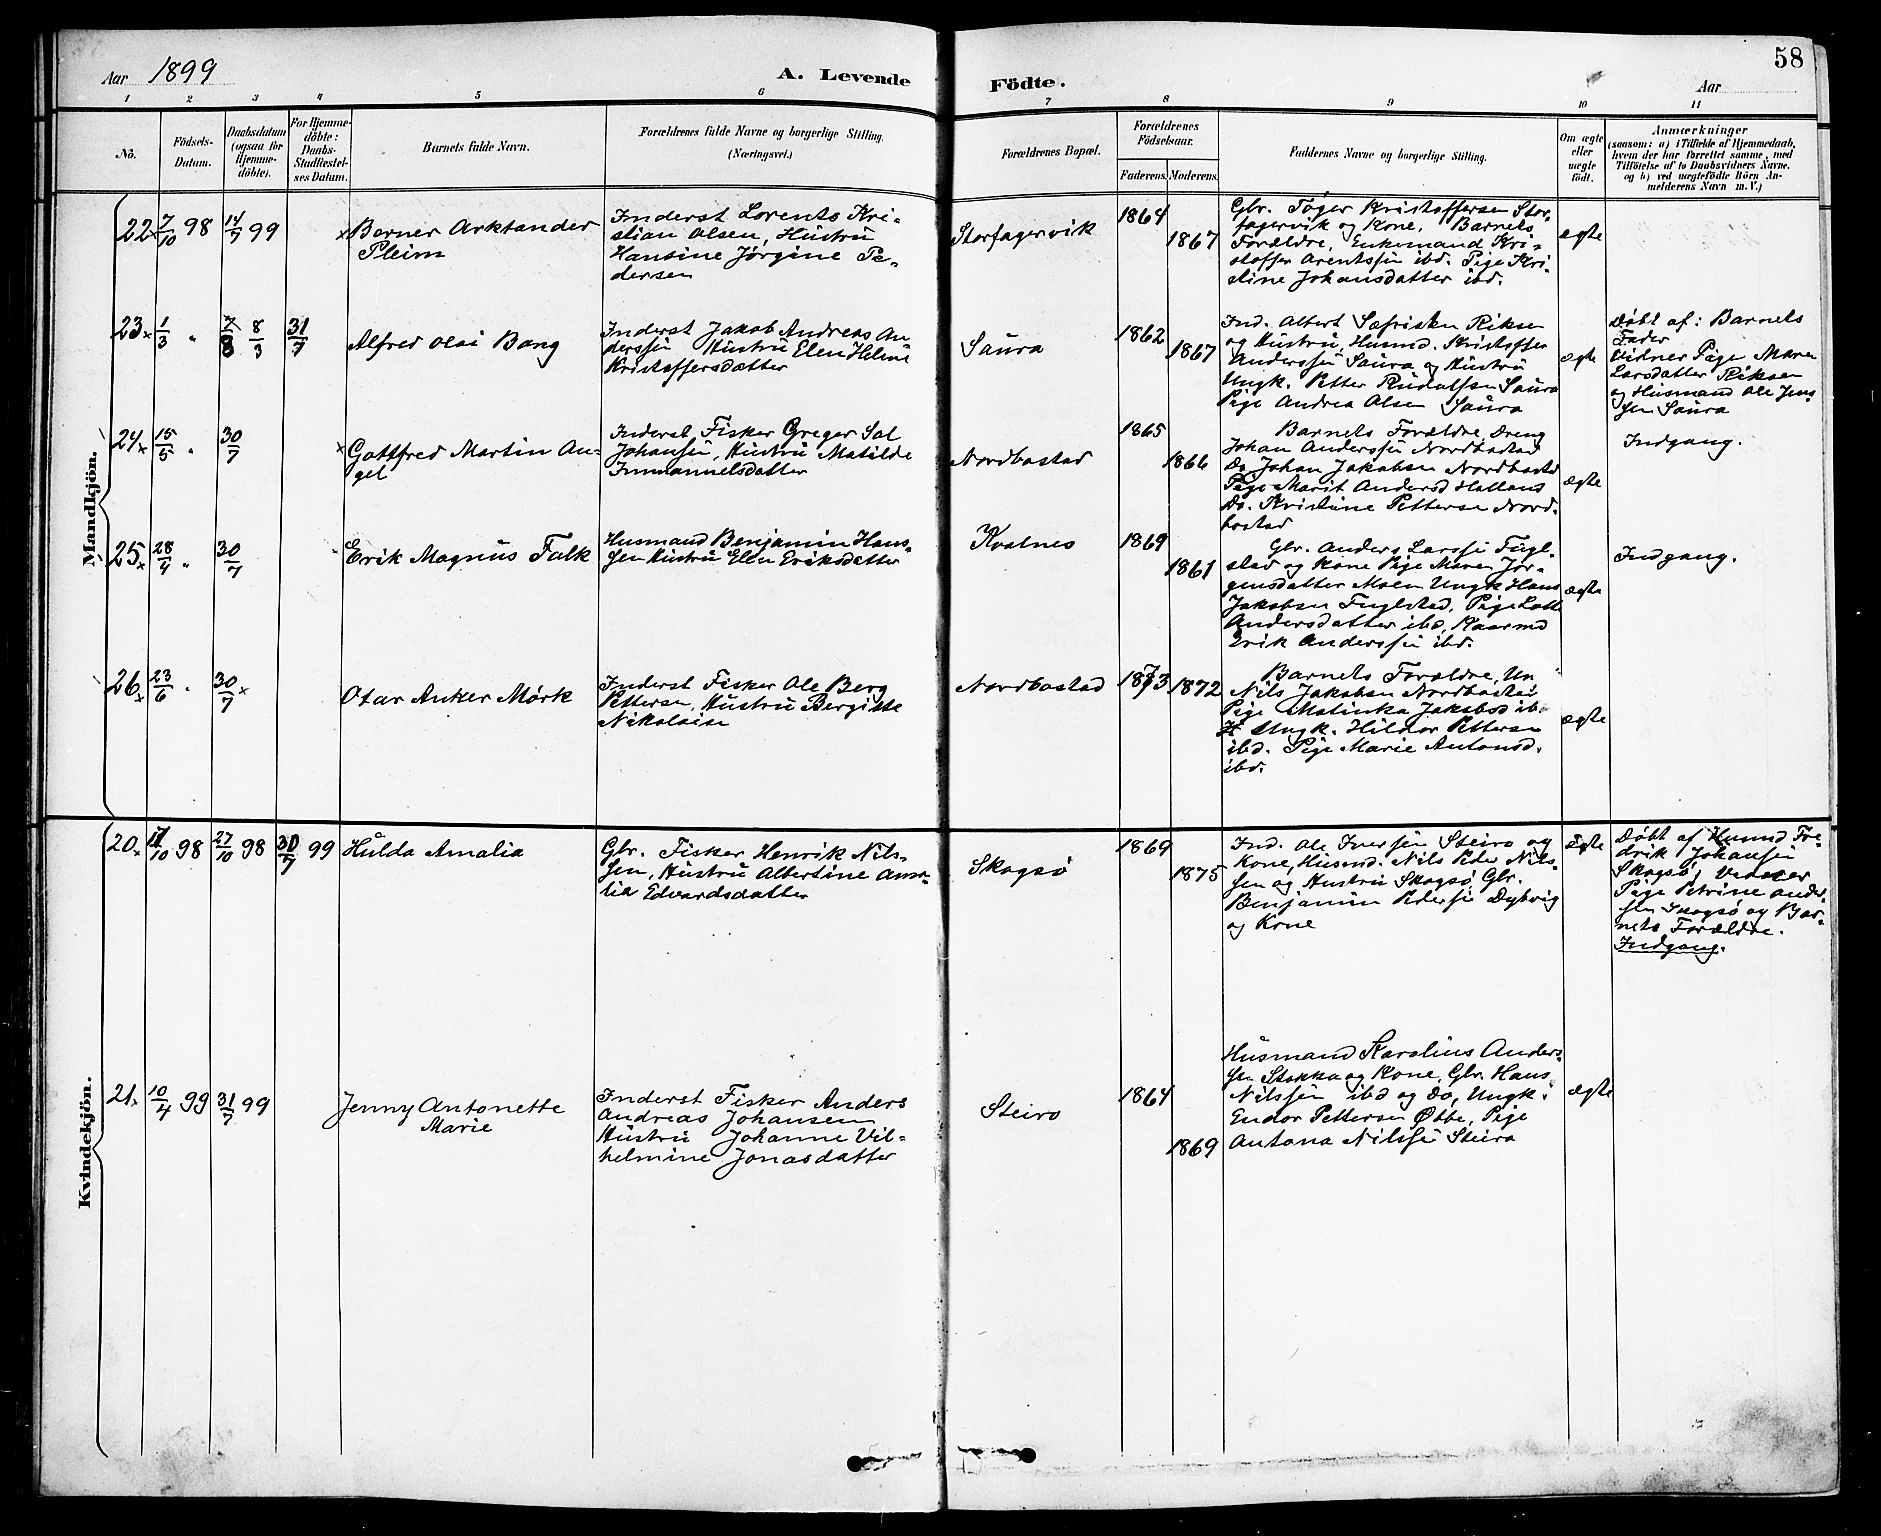 58
Aar 1899
A. Levende
Födte.
Aar
1 2 3 4 5 6 7 8 9 10 11
No.
Födsels-
Datum.
Daabsdatum
(ogsaa for
Hjemme-
döbte).
For Hjemme-
döbte:
Daabs-
Stadfæstel-
ses Datum.
Barnets fulde Navn.
Forældrenes fulde Navne og borgerlige Stilling.
(Næringsvei.)
Forældrenes Bopæl.
Forældrenes
Födselsaar.
Faderens. Moderens.
Faddernes Navne og borgerlige Stilling.
Om ægte
eller
uægte
födt.
Anmærkninger
(saasom: a) i Tilfælde af Hjemmedaab,
hvem der har forrettet samme, med
Tilföielse af to Daabsvidners Navne.
og b) ved uægtefödte Börn An-
melderens Navn m. V.)
Mandkjön.
22 7/10 98 14/7 99
Berner Arktander
Pleim
Inderst Lorents Kri-
stian Olsen, Hustru
Hansine Jørgine Pe-
dersen
Storfagervik
1864
1867
Gbr. Tøger Kristoffersen Stor-
fagervik og Kone, Barnets
Forældre, Enkemand Kri-
stoffer Arentssen ibd. Pige Kri-
stine Johansdatter ibd.
ægte
23 1/3 " 7/8 8/3 31/7
Alfred Olai Bang
Inderst Jakob Andreas An-
derssen Hustru Elen Heline
Kristoffersdatter
Saura
1862
1867
Ind. Albert Sefrisken Riksen
og Hustru, Husmd. Kristoffer
Anderssen Saura og Hustru
Ungk. Petter Rudolfsen Saura
Pige Andrea Olsen Saura
ægte
Døbt af: Barnets
Fader
Vidner Pige Maren
Larsdatter Riksen
og Husmand Ole Jens
sen Saura
24 15/5 " 30/7
Gottfred Martin An-
gel
Inderst Fisker Greger Sal
Johansen, Hustru Matilde
Immannelsdatter
Nordbostad
1865
1866
Barnets Forældre, Dreng
Johan Anderssen Nordbostad
Do. Johan Jakobsen Nordbostd
Pige Marit Andersd Hallans
Do. Kristine Pettersen Nord-
bostad
ægte
Indgang.
25 28/4 " 30/7
Erik Magnus Falk
Husmand Benjamin Hans-
sen Hustru Elen Eriksdatter
Kvalnes
1869
1861
Gbr. Anders Larssen Fugl-
stad og Kone Pige Maren Jør-
gensdatter Moen Ungk Hans
Jakobsen Fuglstad, Pige Lott
Andersdatter ibd, Kaarmd
Erik Anderssen ibd.
ægte
Indgang.
26 23/6 " 30/7
Otar Anker Mørk
Inderst Fisker Ole Berg
Pettersen, Hustru Bergitte
Nikolaisen
Nordbostad
1873 1872
Barnets Forældre, Un
Nils Jakobsen Nordbostad
Pige Malinka Jakobsd ib.
Ungk. Hildor Pettersen
ibd. Pige Marie Antonsd.
ibd.
ægte
Kvindekjön.
20 17/10 98 27/10 98 30/7 99
Hulda Amalia
Gbr. Fisker Henrik Nils-
sen, Hustru Albertine Ama-
lia Edvardsdatter
Skogsø
1869
1875
Ind. Ole Iversen Steiro og
Kone, Husmd. Nils Peder Nils-
sen og Hustru Skogsø, Gbr.
Benjamin Pedersen Dybvig
og Kone
Ægte
Døbt af Husmd Fre-
drik Johansen
Skogsø, Vidner
Pige Petrine Ander-
sen Skogsø og Bar-
nets Forældre.
Indgang.
21 10/4 99 31/7 99
Jenny Antonette
Marie
Inderst Fisker Anders
Andreas Johansen
Hustru Johanne Vil-
helmine Jonasdatter
Steiro
1864
1869
Husmand Karolius Anders-
sen Stokka og Kone, Gbr. Hans
Nilssen ibd og Do, Ungk.
Endor Pettersen Øbbe, Pige
Antona Nilssen Steiro
ægte